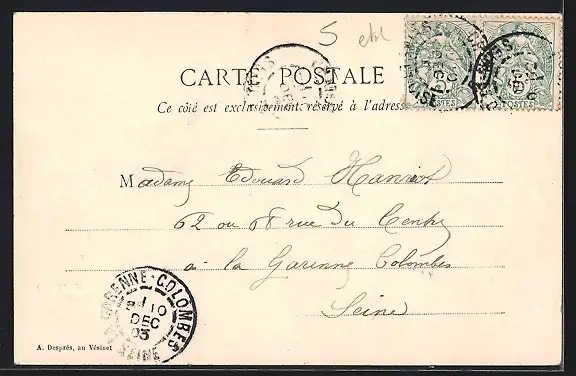 5 etol
CARTE POSTALE
Ce côté est exclusivement réservé à l'adresse
POSTES POSTES
Madame Edouard Hanriot
62 ou 68 rue du Centre
à la Garenne Colombes
Seine
LA GARENNE-COLOMBES
10
DEC
03
SEINE
A. Després, au Vésinet